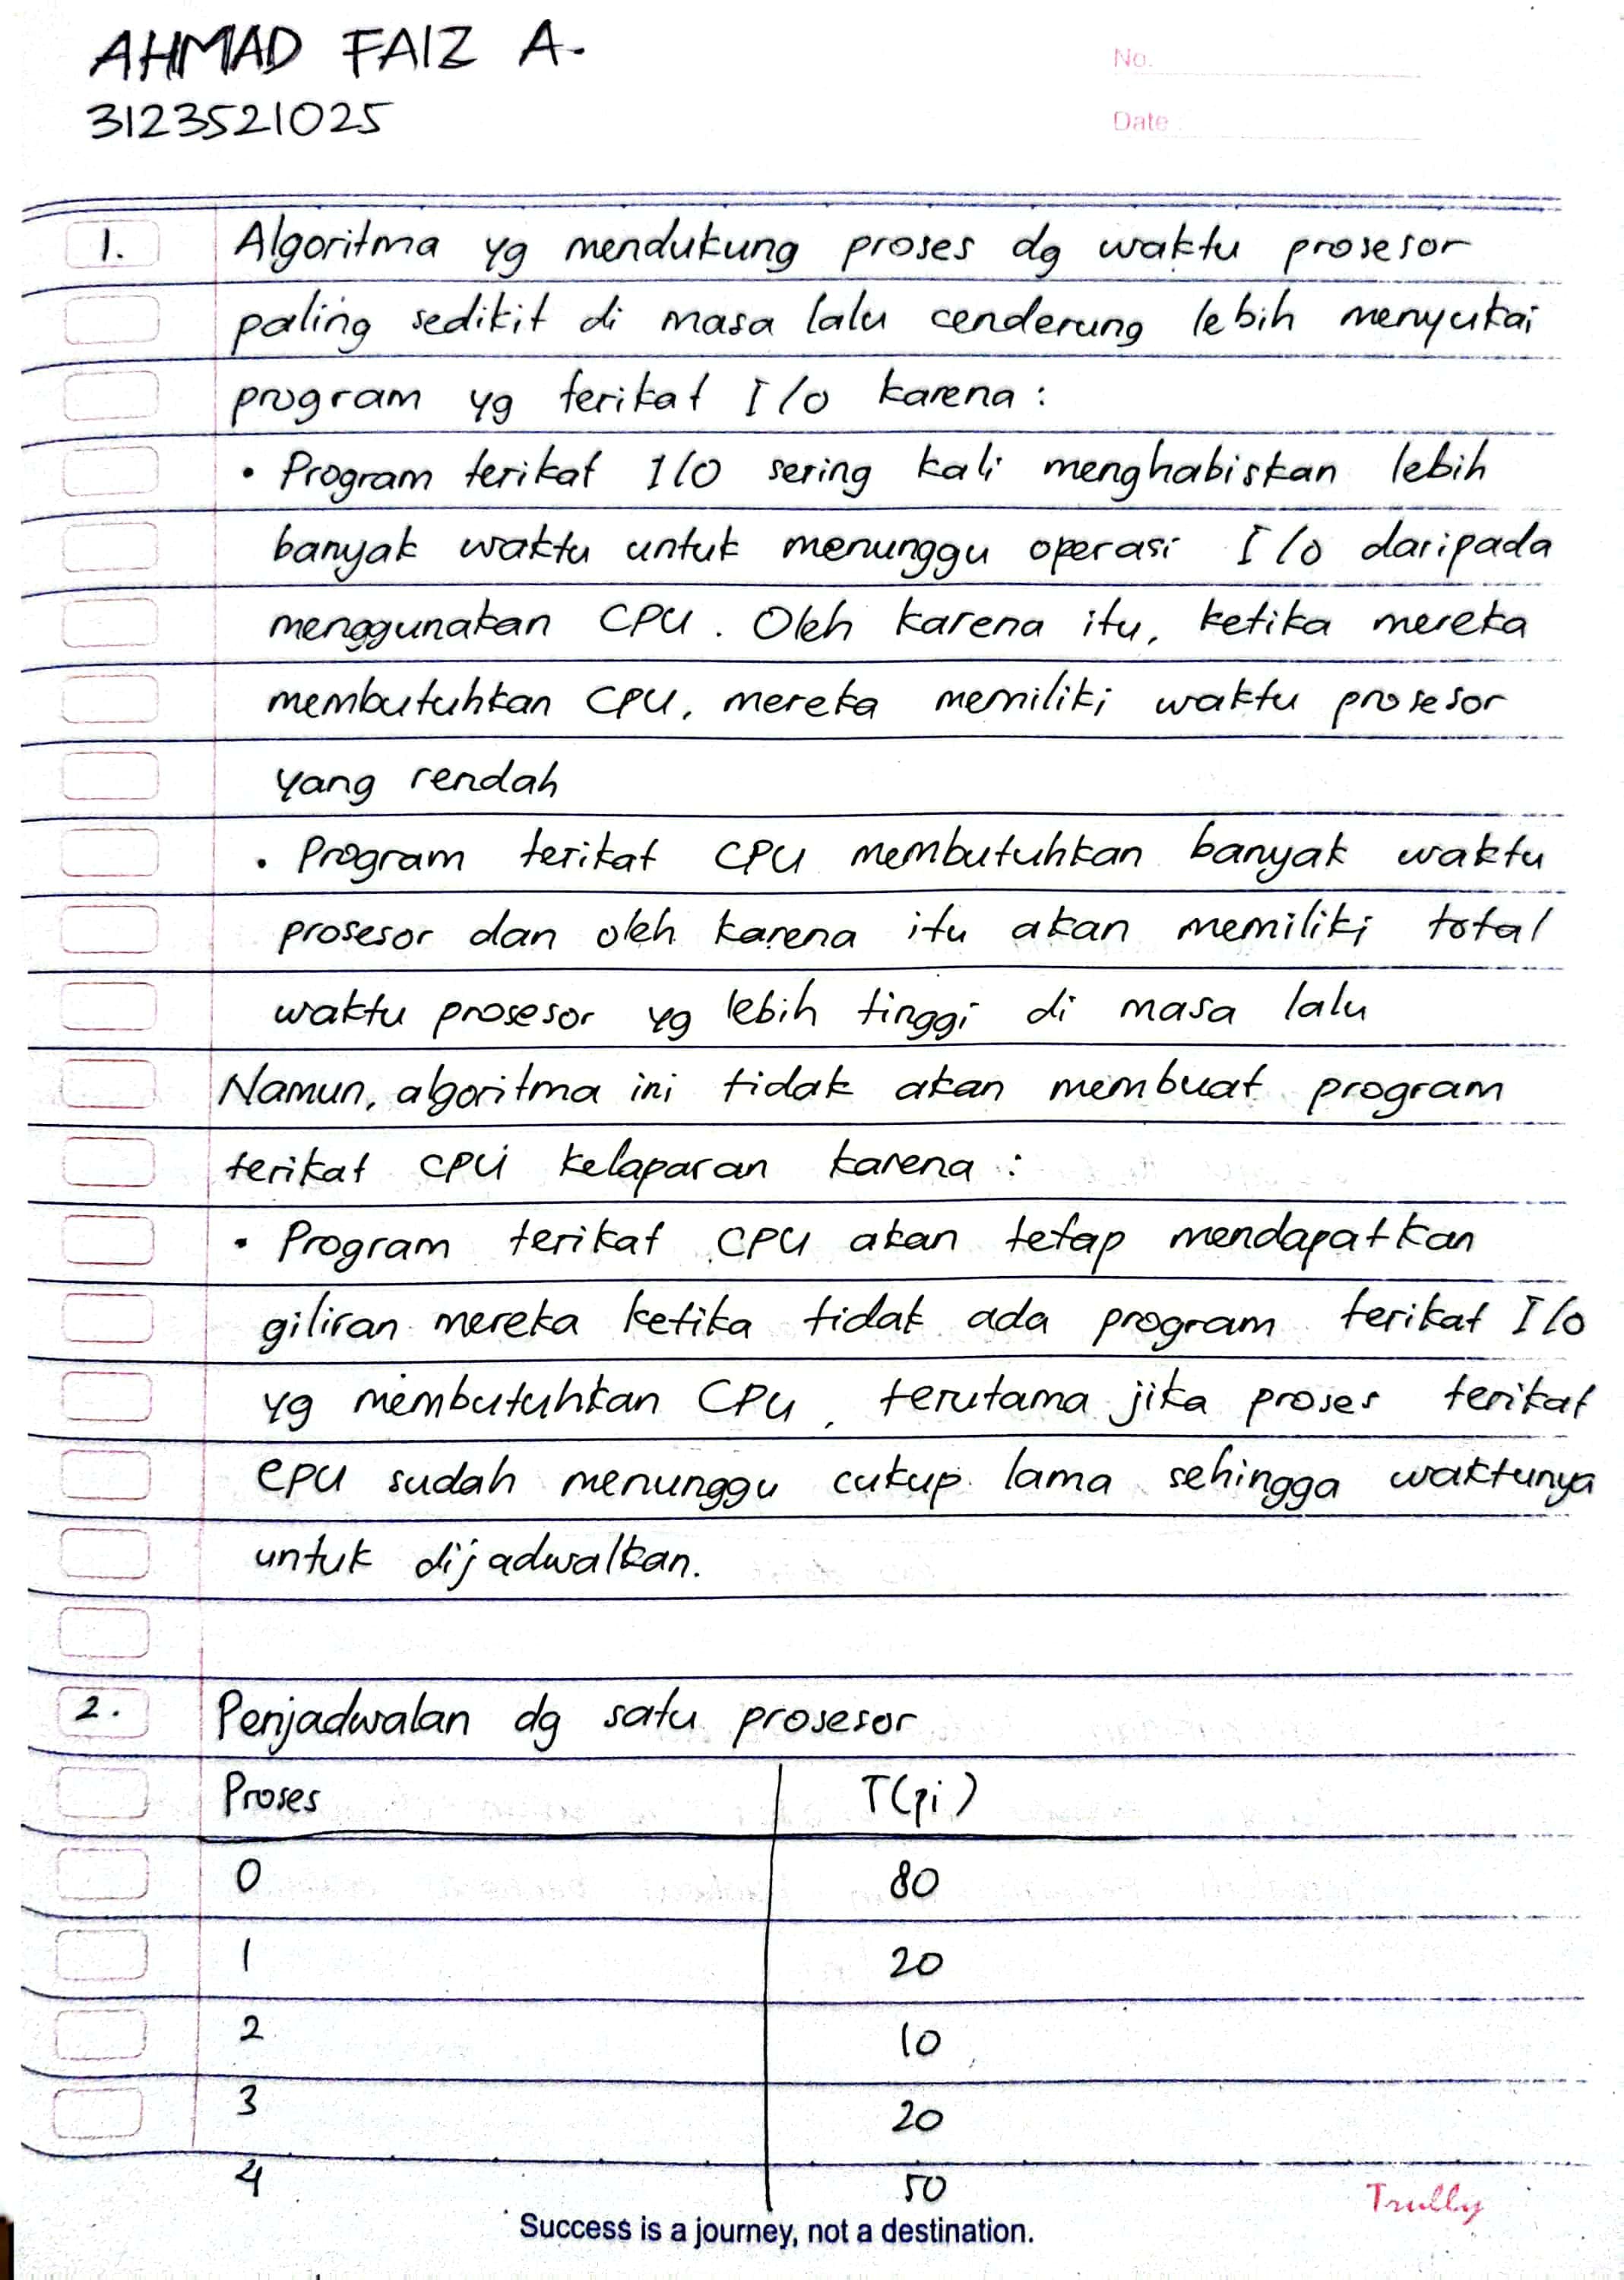 AHMAD FAIZ A.
3123521025
No.
Date
1. Algoritma yg mendukung proses dg waktu prosesor
paling sedikit di masa lalu cenderung lebih menyukai
program yg terikat I/O karena :
• Program terikat I/O sering kali menghabiskan lebih
banyak waktu untuk menunggu operasi I/O daripada
menggunakan CPU. Oleh karena itu, ketika mereka
membutuhkan CPU, mereka memiliki waktu prosesor
yang rendah
• Program terikat CPU membutuhkan banyak waktu
prosesor dan oleh karena itu akan memiliki total
waktu prosesor yg lebih tinggi di masa lalu
Namun, algoritma ini tidak akan membuat program
terikat CPU kelaparan karena :
• Program terikat CPU akan tetap mendapatkan
giliran mereka ketika tidak ada program terikat I/O
yg membutuhkan CPU, terutama jika proses terikat
CPU sudah menunggu cukup lama sehingga waktunya
untuk dijadwalkan.
2. Penjadwalan dg satu prosesor
Proses T(pi)
0 80
1 20
2 10
3 20
4 50
Success is a journey, not a destination.
Trully